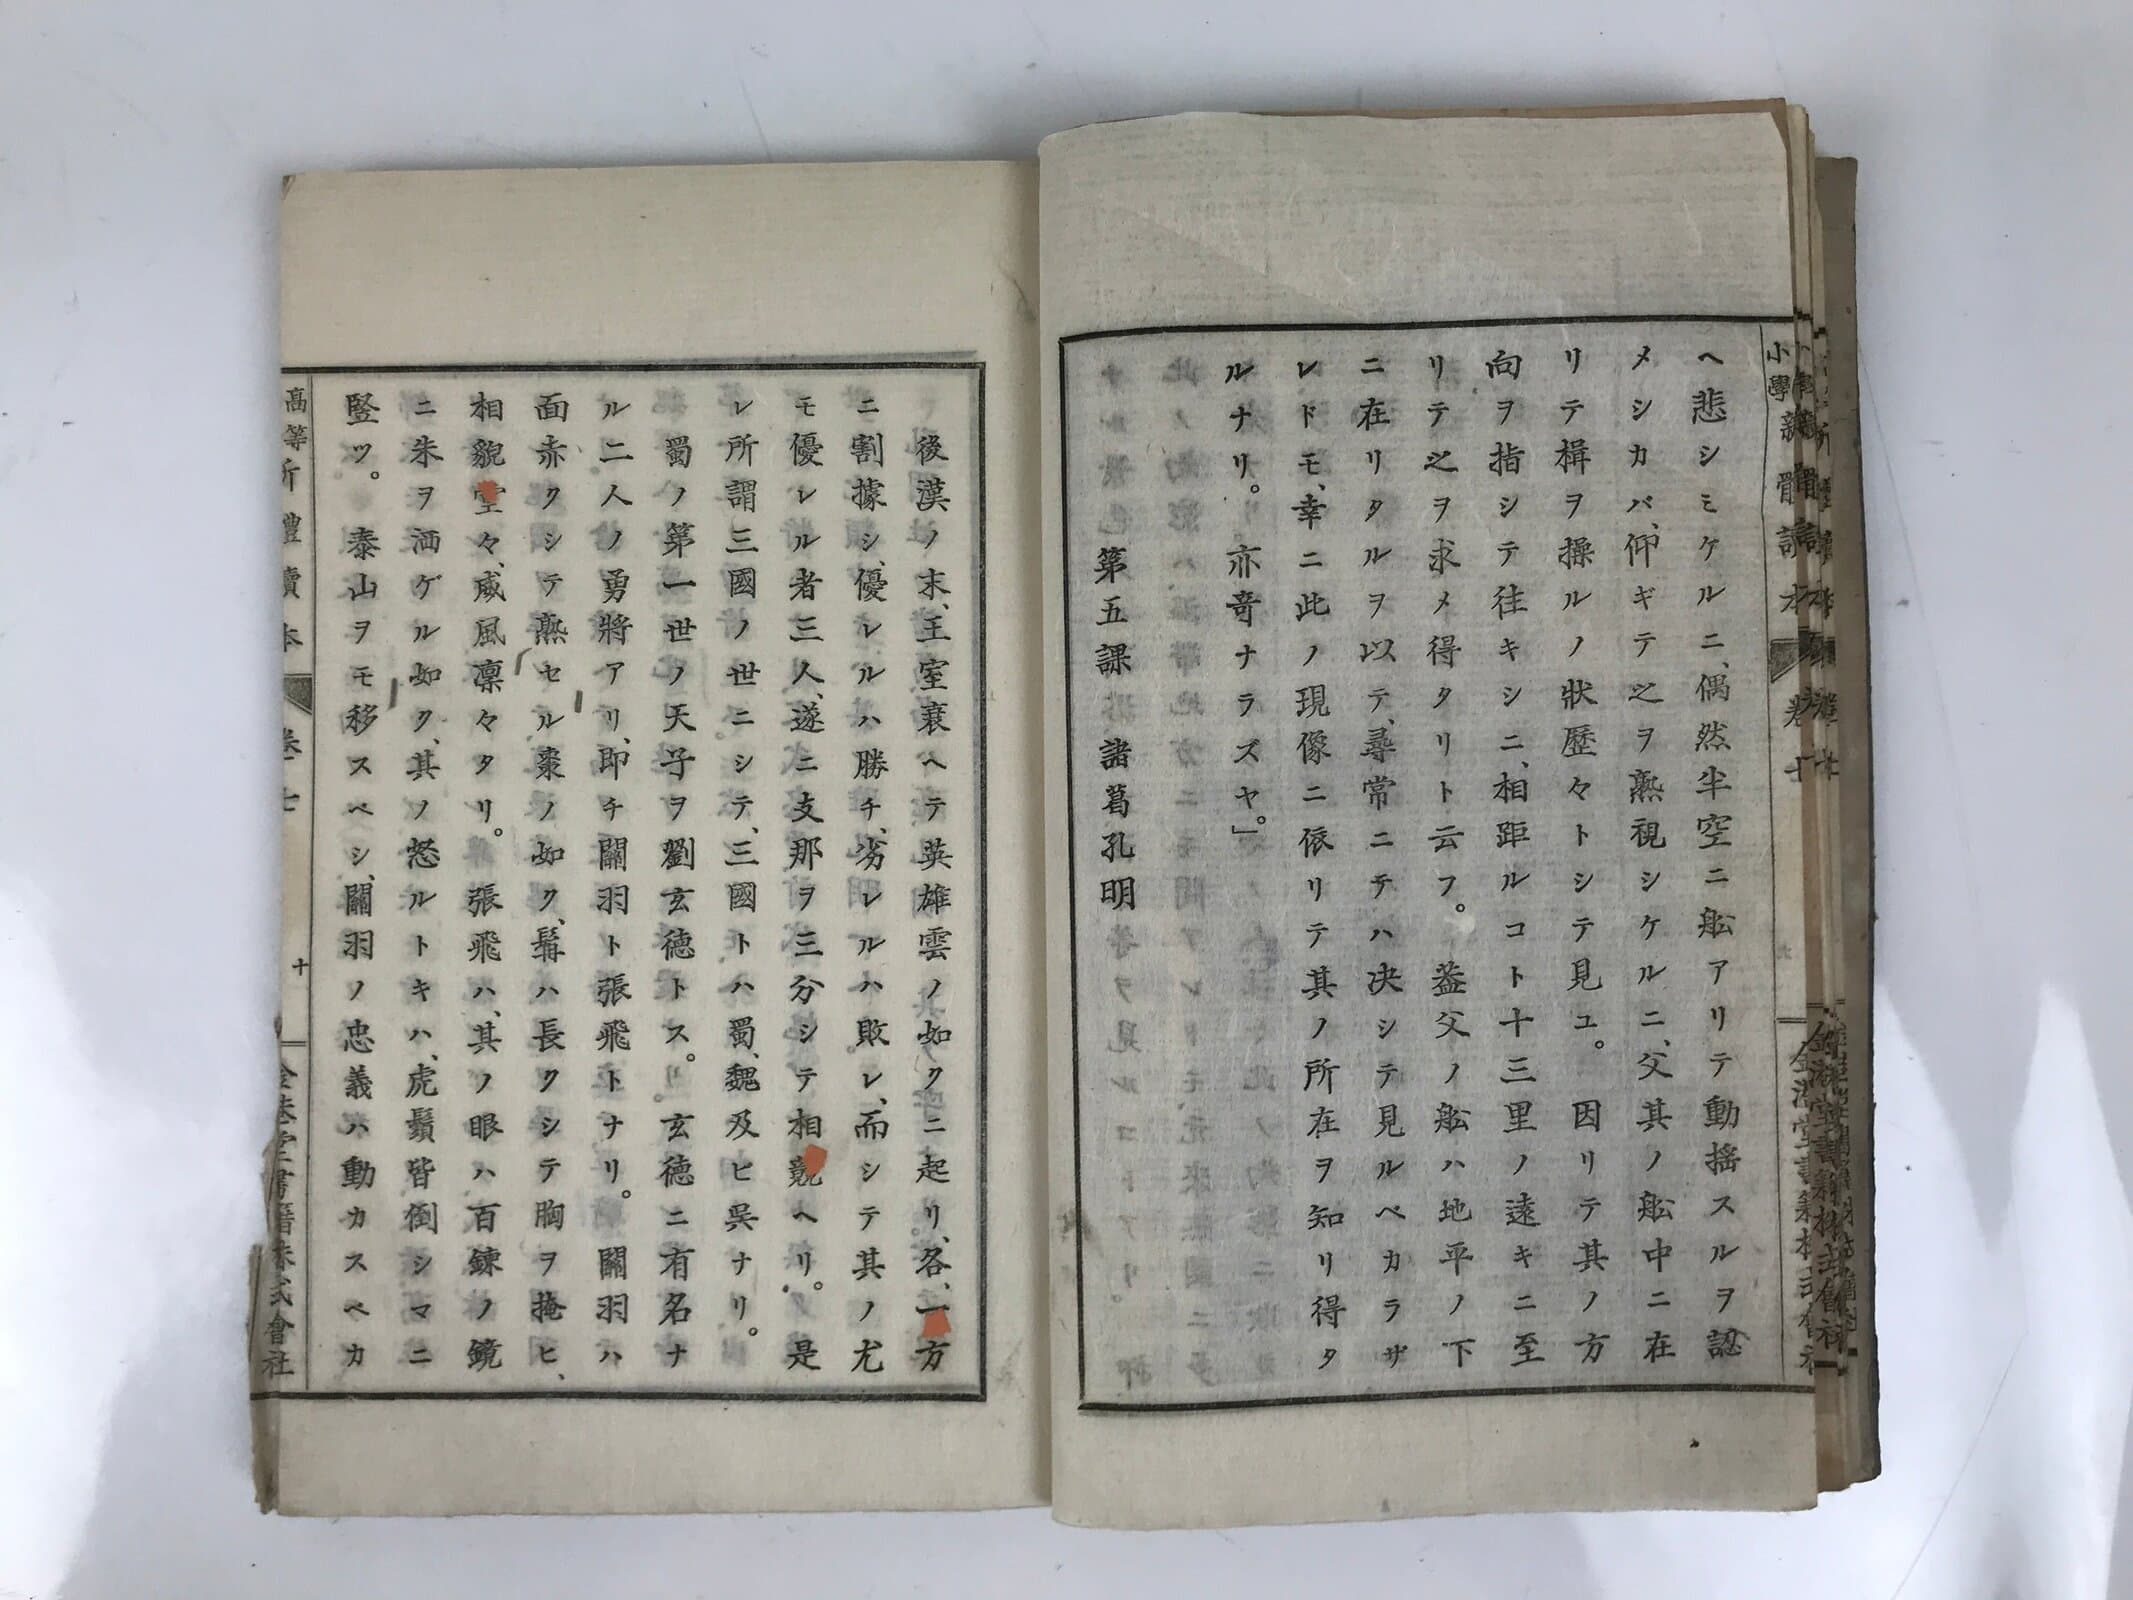 ヘ悲シミケルニ、偶然半空ニ舩アリテ動揺スルヲ認
メシカバ、仰ギテ之ヲ熟視シケルニ、父其ノ舩中ニ在
リテ楫ヲ操ルノ狀歷々トシテ見ユ。因リテ其ノ方
向ヲ指シテ往キシニ、相距ルコト十三里ノ遠キニ至
リテ之ヲ求メ得タリト云フ。蓋父ノ舩ハ地平ノ下
ニ在リタルヲ以テ、尋常ニテハ決シテ見ルベカラザ
レドモ、幸ニ此ノ現像ニ依リテ其ノ所在ヲ知リ得タ
ルナリ。亦竒ナラズヤ。」
第五課 諸葛孔明
後漢ノ末、王室衰ヘテ英雄雲ノ如クニ起リ、各、一方
ニ割據シ、優レルハ勝チ、劣レルハ敗レ、而シテ其ノ尤
モ優レル者三人、遂ニ支那ヲ三分シテ相競ヘリ。是
レ所謂三國ノ世ニシテ、三國トハ蜀、魏及ヒ吳ナリ。
蜀ノ第一世ノ天子ヲ劉玄德トス。玄德ニ有名ナ
ル二人ノ勇將アリ、即チ關羽ト張飛トナリ。關羽ハ
面赤クシテ熟セル棗ノ如ク、髯ハ長クシテ胸ヲ掩ヒ、
相貌堂々、威風凛々タリ。張飛ハ、其ノ眼ハ百鍊ノ鏡
ニ朱ヲ洒ゲル如ク、其ノ怒ルトキハ、虎鬚皆倒シマニ
竪ツ。泰山ヲモ移スベシ、關羽ノ忠義ハ動カスベカ
高等 讀本 卷七 十
書籍株式會社